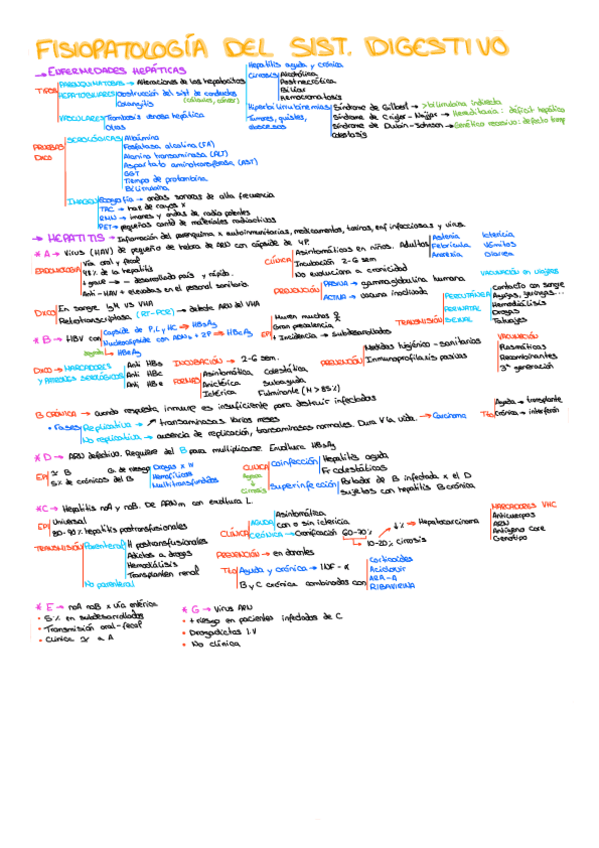 FISIOPATOLOGÍA DEL SIST. DIGESTIVO
→ ENFERMEDADES HEPÁTICAS
TIPOS
PARENQUIMATOSIS → Alteraciones de los hepatocitos
HEPATOBILIARES
Obstrucción del sist de conductos (cálculos, cáncer)
Colangitis
VASCULARES
Trombosis venosa hepática
Otras
Hepatitis aguda y crónica
Cirrosis
Alcohólica
Postnecrótica
Biliar
Hemocromatosis
Hiperbilirrubinemias
Síndrome de Gilbert → > bilirrubina indirecta
Síndrome de Crigler-Najjar → Hereditaria: déficit hepático
Síndrome de Dubin-Johnson → Genética recesivo: defecto transp
Colestasis
Tumores, quistes, abscesos
PRUEBAS DICO
SEROLÓGICAS
Albúmina
Fosfatasa alcalina (FA)
Alanina transaminasa (ALT)
Aspartato aminotransferasa (AST)
GGT
Tiempo de protombina
Bilirrubina
IMAGEN
Ecografía → ondas sonoras de alta frecuencia
TAC → haz de rayos X
RMN → imanes y ondas de radio potentes
PET → pequeñas cantd de materiales radiactivos
→ HEPATITIS → Inflamación del parénquima x autoinmunitarias, medicamentos, toxinas, enf infecciosas y virus
* A → Virus (HAV) de pequeño de hebra de ARN con cápside de 4P.
EPIDEMIOLOGÍA
Vía oral y fecal
98% de la hepatitis
↓ grave → – desarrollado país y rápida.
Anti-HAV + elevadas en el personal sanitario.
CLÍNICA
Asintomáticas en niños. Adultos
Incubación 2-6 sem
No evoluciona a cronicidad
Astenia
Febrícula
Anorexia
Ictericia
Vómitos
Diarrea
PREVENCIÓN
PASIVA → gammaglobulina humana
ACTIVA → vacuna inactivada
VACUNACIÓN en viajeros
DICO
En sangre IgM VS VHA
Retrotranscriptasa (RT-PCR) → detecta ARN del VHA
* B → HBV con
Cápside de P, L y HC → HBsAg
Nucleocápside con ADNb + 2P → HBcAg
→ HBeAg
EPI
Mueren muchos
Gran prevalencia
+ Incidencia → Subdesarrollados
TRANSMISIÓN
PERCUTÁNEA
PERINATAL
SEXUAL
contacto con sangre
Agujas, jeringas...
Hemodiálisis
Drogas
Tatuajes
DICO → MARCADORES y ANTÍGENOS SEROLÓGICOS
Anti HBs
Anti HBc
Anti HBe
INCUBACIÓN → 2-6 sem.
FORMAS
Asintomática Colestática
Anictérica Subaguda
Ictérica Fulminante (M > 85%)
PREVENCIÓN
Medidas higiénico-sanitarias
Inmunoprofilaxis pasivas
VACUNACIÓN
Plasmáticas
Recombinantes
3ª generación
B CRÓNICA → cuando respuesta inmune es insuficiente para destruir infectados
• Fases
Replicativa → ↗ transaminasas varios meses
No replicativa → ausencia de replicación, transaminasas normales. Dura V la vida. → Carcinoma
Tto
Aguda → transplante
Crónica → interferón
* D → ARN defectivo. Requiere del B para multiplicarse. Envoltura HBsAg
EPI
≃ B
5% de crónicas del B
G. de riesgo
Drogas x IV
Hemofílicos
Multitransfundidos
CLÍNICA
Coinfección
Hepatitis aguda
Fr colestáticas
Superinfección
Portador de B infectada x el D
Sujetos con hepatitis B crónica
*C → Hepatitis noA y noB. De ARNm con envoltura L.
EPI
Universal
80-90% hepatitis postransfusionales
TRANSMISIÓN
Parenteral
H postransfusionales
Adictos a drogas
Hemodiálisis
Transplanten renal
No parenteral
CLÍNICA
AGUDA
Asintomática
con o sin ictericia
CRÓNICA → Cronificación 60-70%
↓% → Hepatocarcinoma
→ 10-20% cirrosis
PREVENCIÓN → en donantes
Tto
Aguda y crónica → INF-α
B y C crónica combinados con
Corticoides
Aciclovir
ARA-A
RIBAVIRINA
MARCADORES VHC
Anticuerpos
ARN
Antígeno core
Genotipo
* E → noA noB x vía entérica
• 5% en subdesarrollados
• Transmisión oral-fecal
• Clínica ≃ a A
* G → Virus ARN
• + riesgo en pacientes infectados de C
• Drogadictos I.V
• No clínica